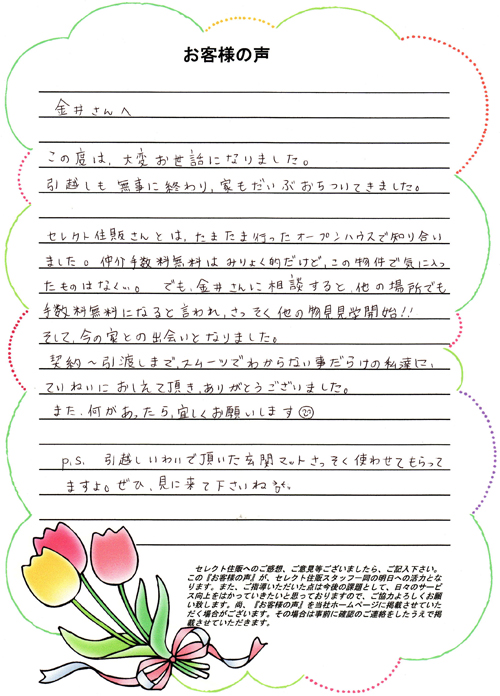 お客様の声
金井さんへ
この度は、大変お世話になりました。
引越しも無事に終わり、家もだいぶおちついてきました。
セレクト住販さんとは、たまたま行ったオープンハウスで知り合い
ました。仲介手数料無料はみりょく的だけど、この物件で気に入っ
たものはなく…。でも、金井さんに相談すると、他の場所でも
手数料無料になると言われ、さっそく他の物見見学開始!!
そして、今の家との出会いとなりました。
契約〜引渡しまで、スムーツでわからない事だらけの私達に、
ていねいにおしえて頂き、ありがとうございました。
また、何があったら、宜しくお願いします
p.s. 引越しいわいで頂いた玄関マットさっそく使わせてもらって
ますよ。ぜひ、見に来て下さいね
セレクト住販へのご感想、ご意見等ございましたら、ご記入下さい。
この『お客様の声』が、セレクト住販スタッフ一同の明日への活力とな
ります。また、ご指導いただいた点は今後の課題として、日々のサービ
ス向上をはかっていきたいと思っておりますので、ご協力よろしくお願
い致します。尚、『お客様の声』を当社ホームページに掲載させていた
だく場合がございます。その場合は事前に確認のご連絡をしたうえで掲
載させていただきます。